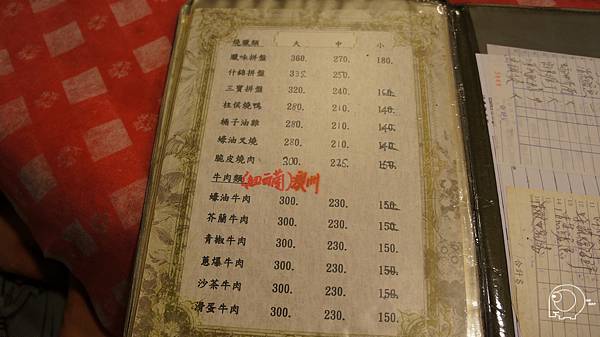 燒臘類 大 中 小
臘味拼盤 360. 270. 180.
什錦拼盤 335. 250.
三寶拼盤 320. 240. 160.
柱侯燒鴨 280. 210. 140.
橘子油雞 280. 210. 140.
蠔油叉燒 280. 210. 140.
脆皮燒肉 300. 225. 150.
牛肉類
蠔油牛肉 300. 230. 150.
芥蘭牛肉 300. 230. 150.
青椒牛肉 300. 230. 150.
蔥爆牛肉 300. 230. 150.
沙茶牛肉 300. 230. 150.
滑蛋牛肉 300. 230. 150.